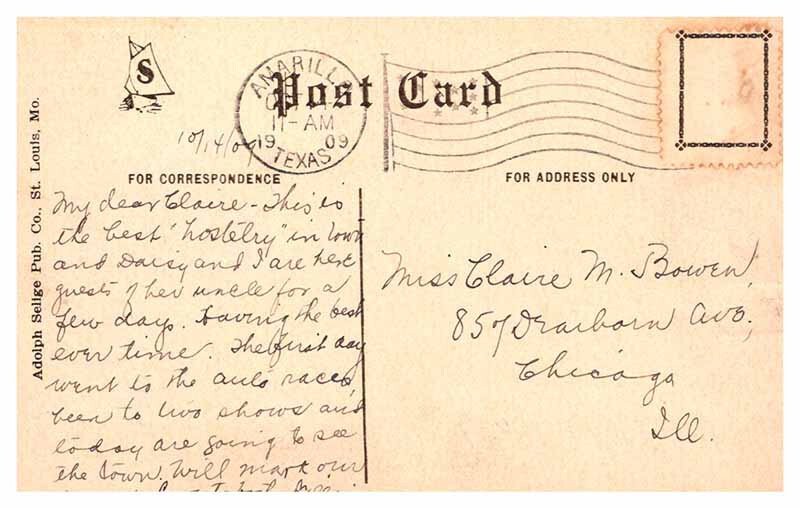 S
Post Card
AMARILLO
11-AM
19 09
TEXAS
10/14/09
FOR CORRESPONDENCE
FOR ADDRESS ONLY
Adolph Selige Pub. Co., St. Louis, Mo.
My dear Claire - This is
the best "hostelry" in town
and Daisy and I are here
guests of her uncle for a
few days. Having the best
ever time. The first day
went to the auto races,
been to two shows and
today are going to see
the town. Will mark our
Miss Claire M. Bowen,
Dearborn Ave,
Chicago
Ill.